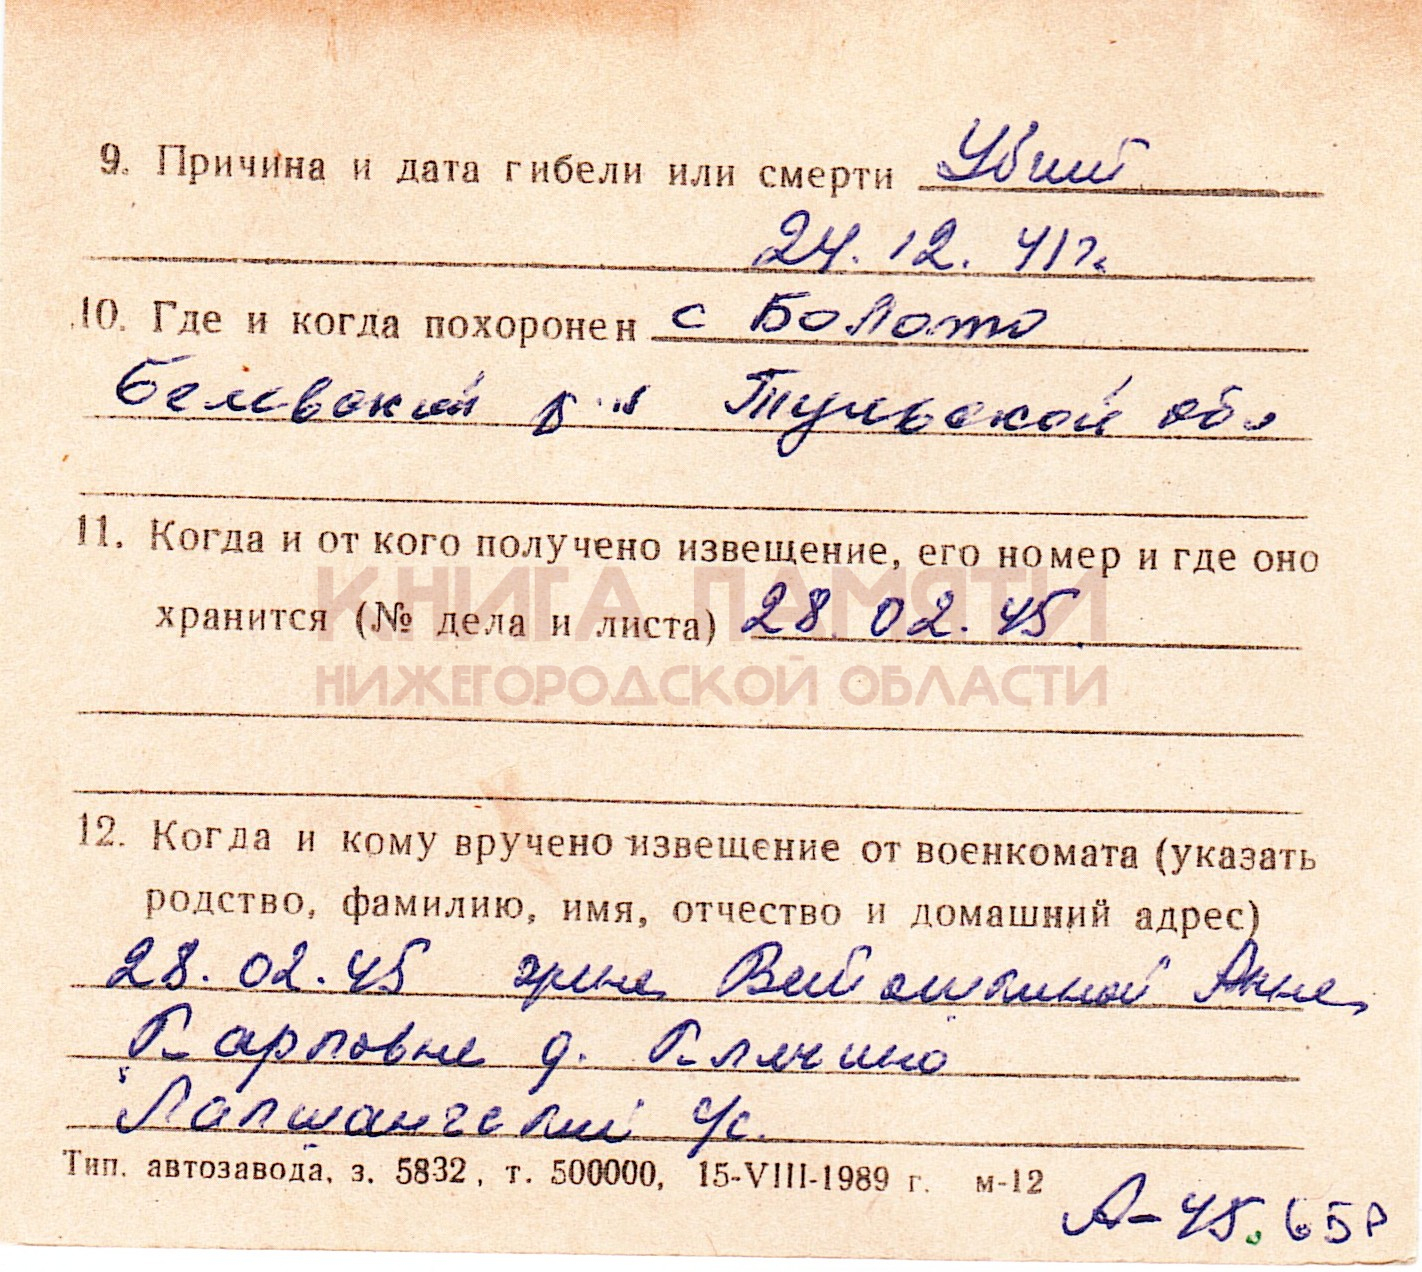 9. Причина и дата гибели или смерти Убит
24.12.41г.
10. Где и когда похоронен с Болото
Белевский р-н Тульской обл
11. Когда и от кого получено извещение, его номер и где оно
КНИГА ПАМЯТИ
хранится (№ дела и листа) 28.02.45
НИЖЕГОРОДСКОЙ ОБЛАСТИ
12. Когда и кому вручено извещение от военкомата (указать
родство, фамилию, имя, отчество и домашний адрес)
28.02.45 жене Анне
Карповне д. Клячино
Лапшангский с/с.
Тип. автозавода, з. 5832, т. 500000, 15-VIII-1989 г. м-12
А-45.